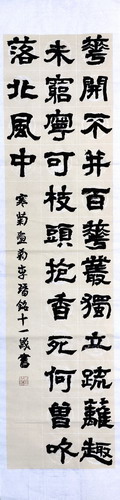 蕐開不并百蕐叢獨立疏籬趣
未窮寧可枝頭抱香死何曾吹
落北風中
寒菊畫菊李銘十一歲書